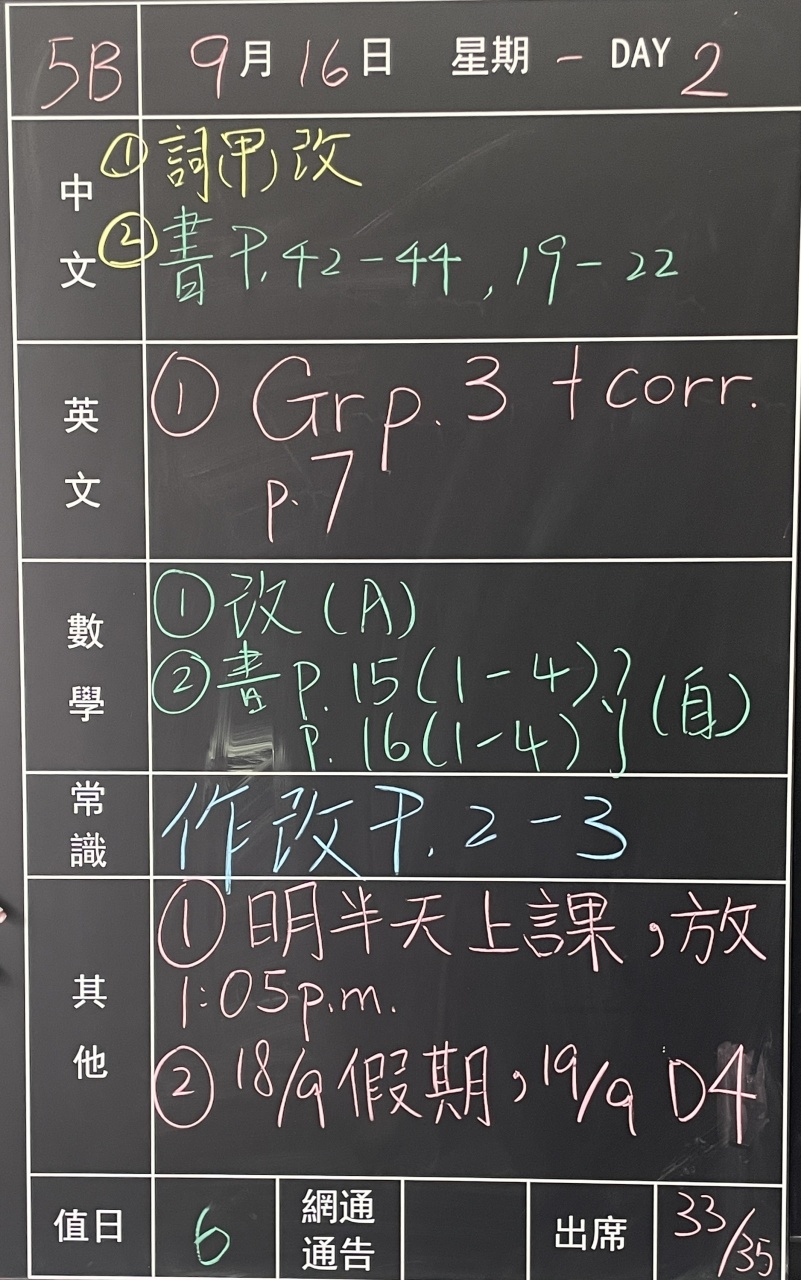 5B 9月16日 星期一 DAY 2
中文 ①詞(甲)改
②書P.42-44,19-22
英文 ① Gr p.3 + corr.
p.7
數學 ①改(A)
②書p.15(1-4)
p.16(1-4) } (自)
常識 作改P.2-3
其他 ①明半天上課,放
1:05p.m.
②18/9假期,19/9 D4
值日 6 網通通告 出席 33/35